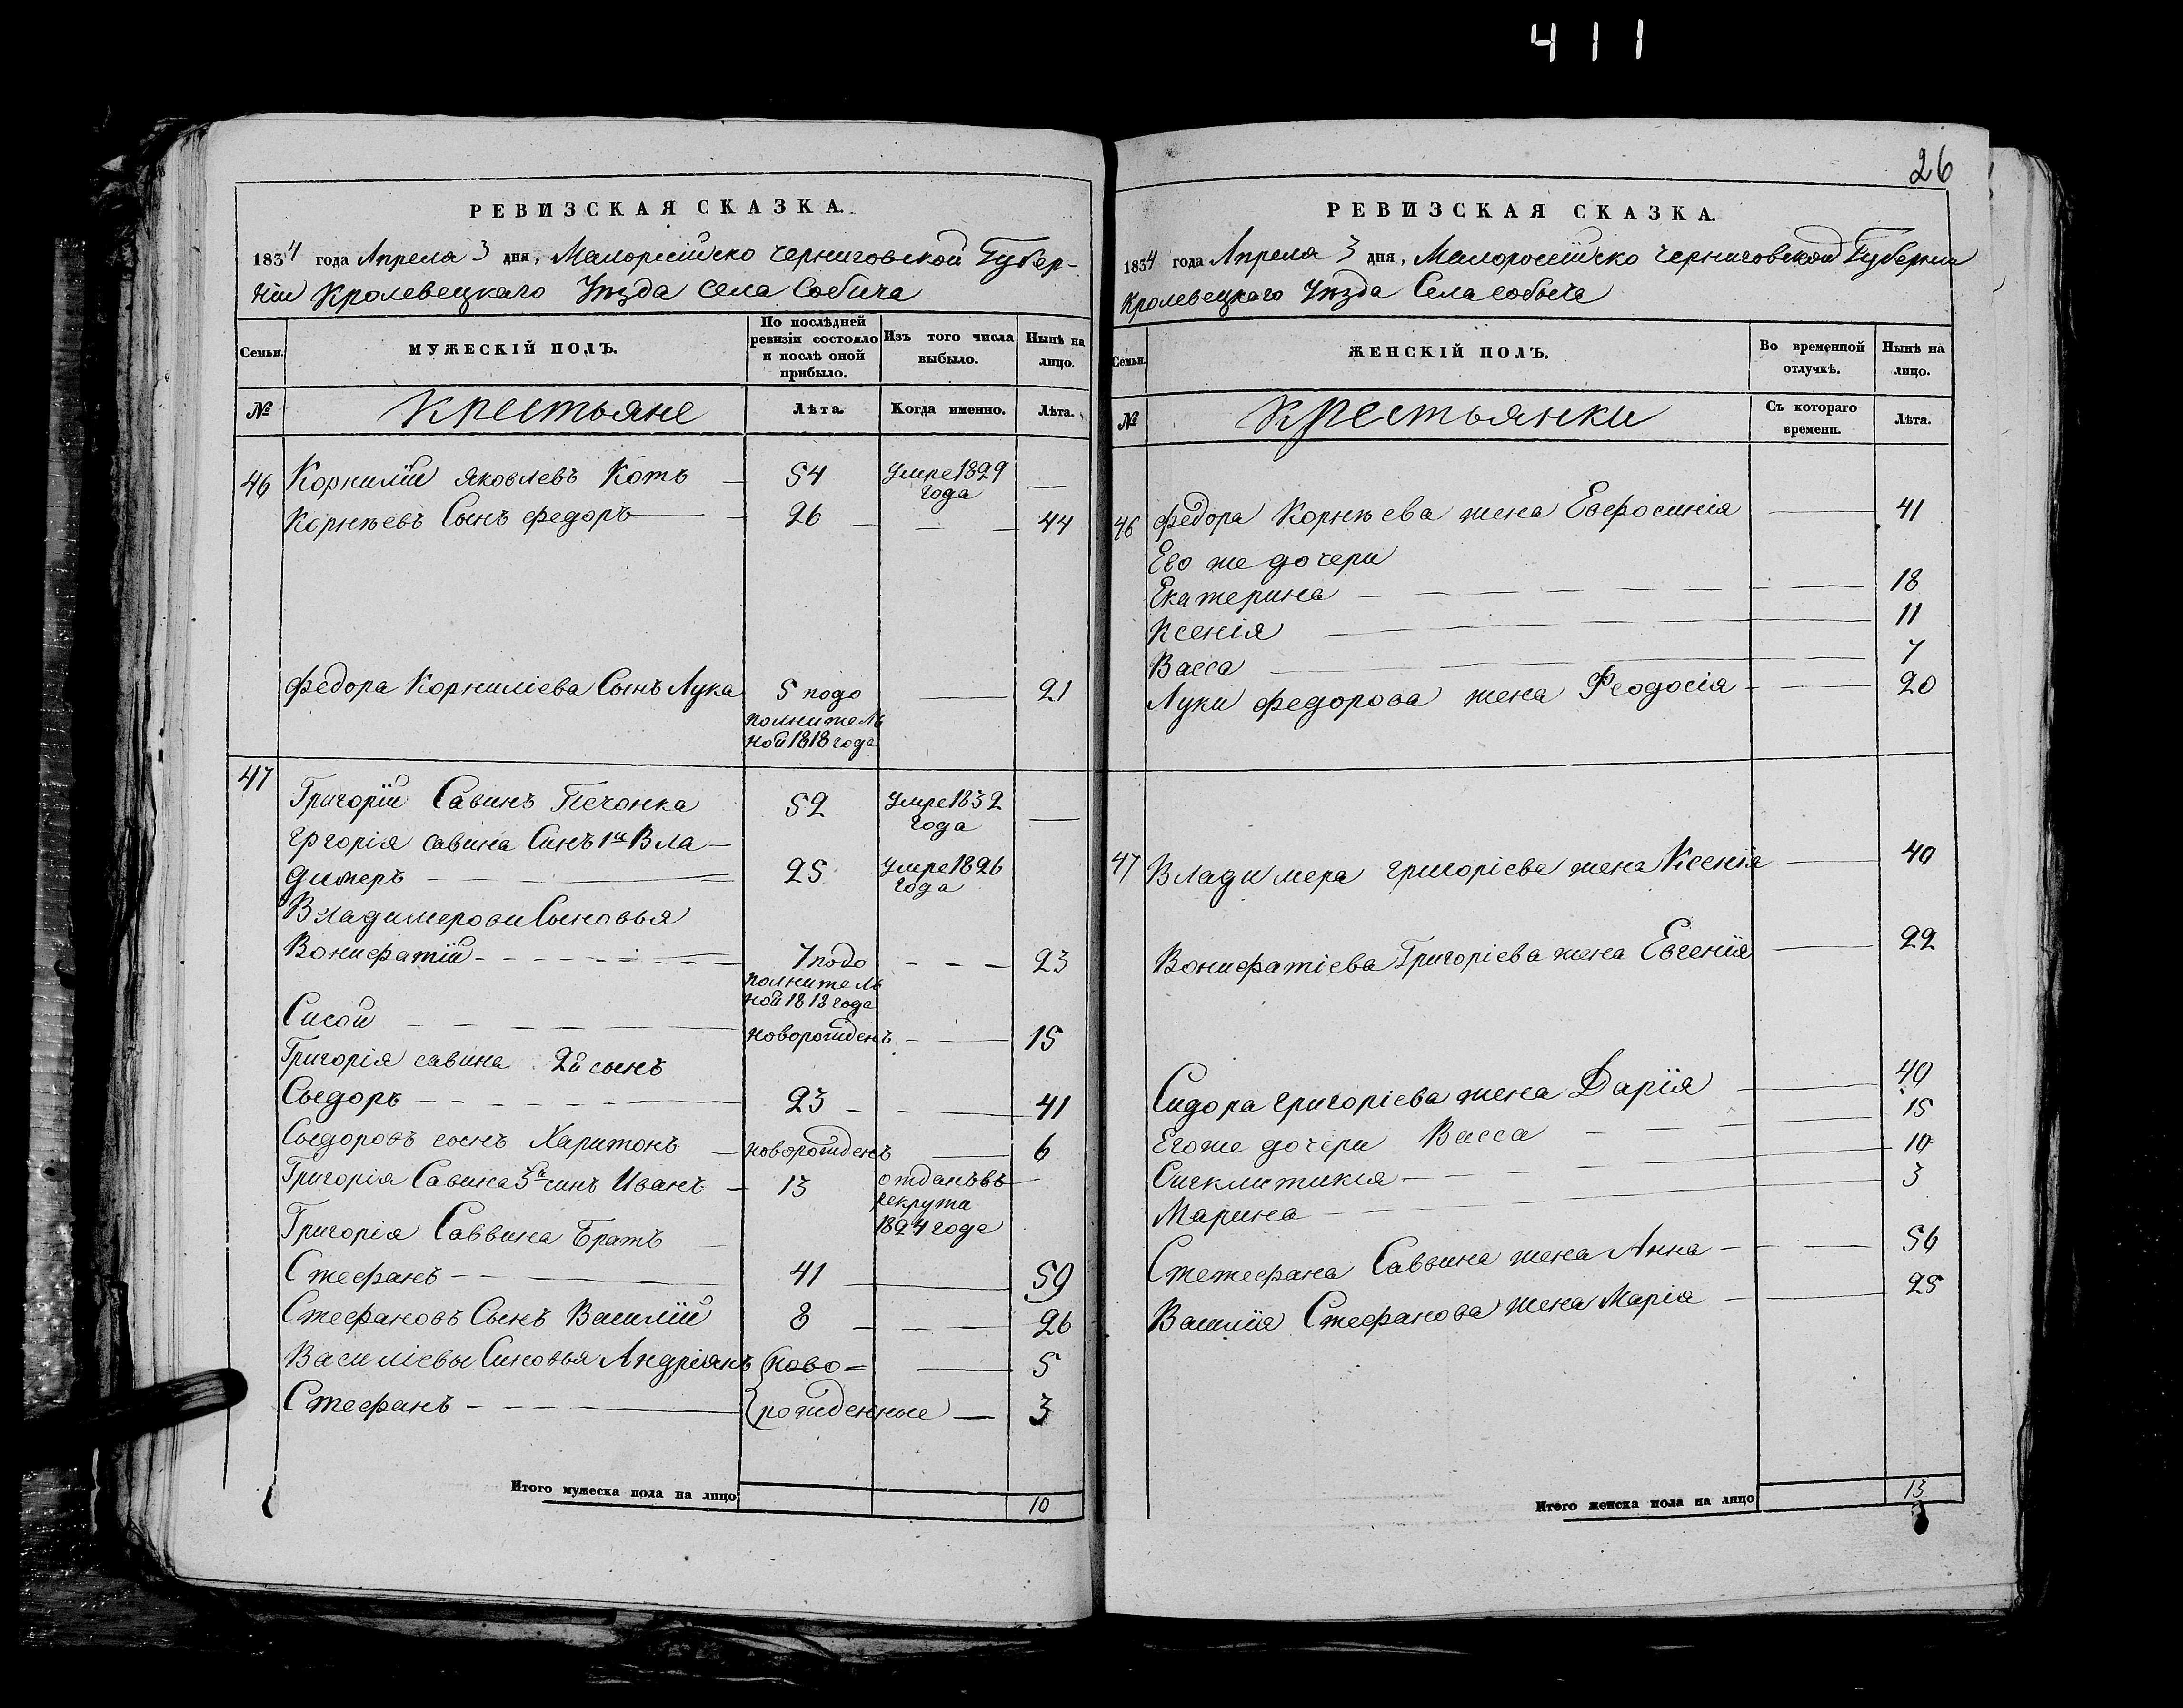 411
РЕВИЗСКАЯ СКАЗКА.
1834 года Апреля 3 дня, Малоросійско Черниговской Губер-
ніи Кролевецкаго Уѣзда села Собича
Семьи. МУЖЕСКІЙ ПОЛЪ. По послѣдней ревизіи состояло и послѣ оной прибыло. Изъ того числа выбыло. Нынѣ на лицо.
№ Крестьяне Лѣта. Когда именно. Лѣта.
46 Корнилій Яковлевъ Котъ — 54 Умре 1829 года —
Корнѣевъ Сынъ Федоръ — 26 — — — 44
Федора Корниліева Сынъ Лука 5 подо — 21
полнитель
ной 1818 года
47
Григорій Савинъ Печонка 52 Умре 1832 года —
Григорія савина Синъ 1й Вла-
димеръ — 25 Умре 1826 года
Владимерови Сыновья
Вонифатій — 7 подо — — — 23
полнитель
ной 1818 года
Сисой — новорожденъ — — 15
Григорія савина 2й сынъ
Сыдоръ — 23 — — 41
Сыдоровъ сынъ Харитонъ — новорожденъ — 6
Григорія Савина 3й синъ Иванъ — 13 отданъ въ —
рекрути
1824 годе
Григорія Саввина Братъ —
Стефанъ — 41 — 59
Стефановъ Сынъ Василій 8 — — — 26
Василіевы Синовья Андріянъ (ново= — 5
Стефанъ — {рожденные — 3
Итого мужеска пола на лицо 10
26
РЕВИЗСКАЯ СКАЗКА.
1834 года Апреля 3 дня, Малоросійско Черниговской Губерніи
Кролевецкаго Уѣзда Села собыча
Семьи. ЖЕНСКІЙ ПОЛЪ. Во временной отлучкѣ. Нынѣ на лицо.
№ Крестьянки Съ котораго времени. Лѣта.
46 Федора Корнѣева жена Евфросинія — 41
Его же дочери
Екатерина — 18
Ксенія — 11
Васса — 7
Луки Федорова жена Феодосія — 20
47 Владимера григоріева жена Ксенія — 40
Вонифатіева Григоріева жена Евгенія — 22
Сидора григоріева жена Дарія — 40
Егоже дочери Васса — 15
Сигклитикія — 10
Марина — 3
Стетефана Саввина жена Анна — 56
Василія Стефанова жена Марія — 25
Итого женска пола на лицо 13